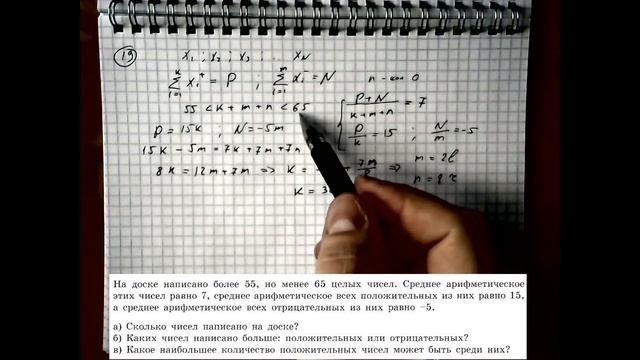 19
x₁ ; x₂ ; x₃ ; ... x_N
∑ᵢ₌₁ᵏ xᵢ⁺ = P ; ∑ᵢ₌₁ᵐ xᵢ⁻ = N n - кол 0
55 < k + m + n < 65
(P+N)/(k+m+n) = 7
P = 15k ; N = -5m
P/k = 15 ; N/m = -5
15k - 5m = 7k + 7m + 7n
8k = 12m + 7n => k = + 7n/8 =>
m = 2l
n = 8
k = 3
На доске написано более 55, но менее 65 целых чисел. Среднее арифметическое
этих чисел равно 7, среднее арифметическое всех положительных из них равно 15,
а среднее арифметическое всех отрицательных из них равно –5.
а) Сколько чисел написано на доске?
б) Каких чисел написано больше: положительных или отрицательных?
в) Какое наибольшее количество положительных чисел может быть среди них?